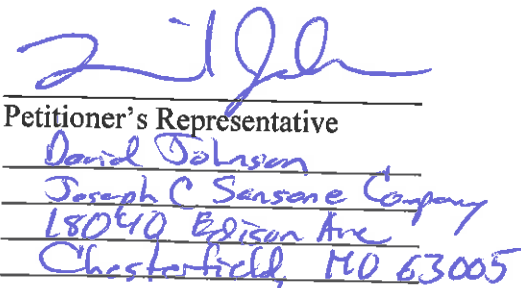 Petitioner's Representative
David Johnson
Joseph C Sansone Company
18040 Edison Ave
Chesterfield, MO 63005